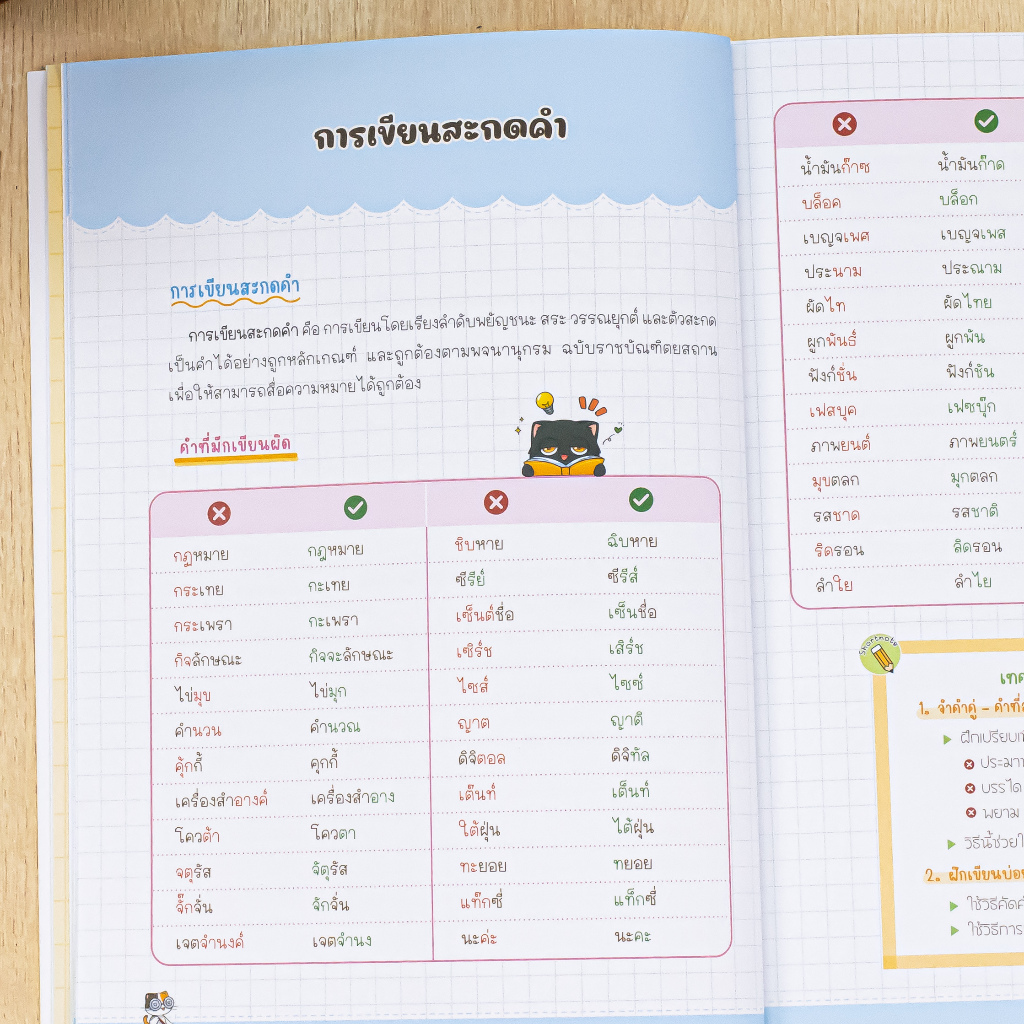 การเขียนสะกดคำ
การเขียนสะกดคำ
การเขียนสะกดคำ คือ การเขียนโดยเรียงลำดับพยัญชนะ สระ วรรณยุกต์ และตัวสะกด
เป็นคำได้อย่างถูกหลักเกณฑ์ และถูกต้องตามพจนานุกรม ฉบับราชบัณฑิตยสถาน
เพื่อให้สามารถสื่อความหมายได้ถูกต้อง
คำที่มักเขียนผิด
กฏหมาย กฎหมาย ชิบหาย ฉิบหาย
กระเทย กะเทย ซีรีย์ ซีรีส์
กระเพรา กะเพรา เซ็นต์ชื่อ เซ็นชื่อ
กิจลักษณะ กิจจะลักษณะ เซิร์ช เสิร์ช
ไข่มุข ไข่มุก ไซส์ ไซซ์
คำนวน คำนวณ ญาต ญาติ
คุ้กกี้ คุกกี้ ดิจิตอล ดิจิทัล
เครื่องสำอางค์ เครื่องสำอาง เต๊นท์ เต็นท์
โควต้า โควตา ใต้ฝุ่น ไต้ฝุ่น
จตุรัส จัตุรัส ทะยอย ทยอย
จั๊กจั่น จักจั่น แท๊กซี่ แท็กซี่
เจตจำนงค์ เจตจำนง นะค่ะ นะคะ
น้ำมันก๊าซ น้ำมันก๊าด
บล็อค บล็อก
เบญจเพศ เบญจเพส
ประนาม ประณาม
ผัดไท ผัดไทย
ผูกพันธ์ ผูกพัน
ฟังก์ชั่น ฟังก์ชัน
เฟสบุค เฟซบุ๊ก
ภาพยนต์ ภาพยนตร์
มุขตลก มุกตลก
รสชาด รสชาติ
ริดรอน ลิดรอน
ลำใย ลำไย
Shortnote
1. จำคำคู่ – คำที่
ฝึกเปรียบเท
บรรได
พยาม
วิธีนี้ช่วยใ
2. ฝึกเขียนบ่อย
ใช้วิธีคัดค
ใช้วิธีการ